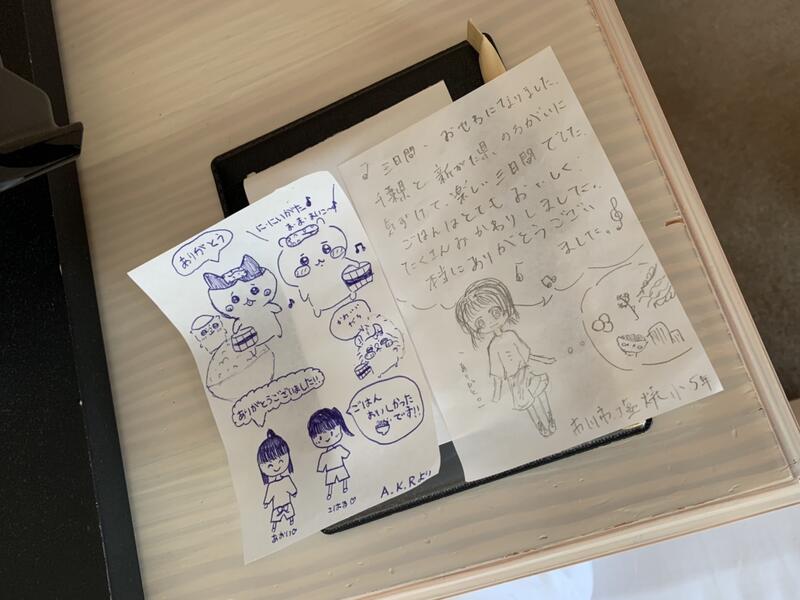 三日間、おせわになりました。
千葉県と新がた県のちがいに
気づけて、楽しい三日間でした。
ごはんはとてもおいしく、
たくさんおかわりしました。
本当にありがとうござい
ました。
ありがとう
市川市 塩焼小5年
に・にいがた
ありがとう
かわいいがら
ありがとうございました!!
ごはん
おいしかった
です!!
あおい♡
こはる♡
A.K.Rより